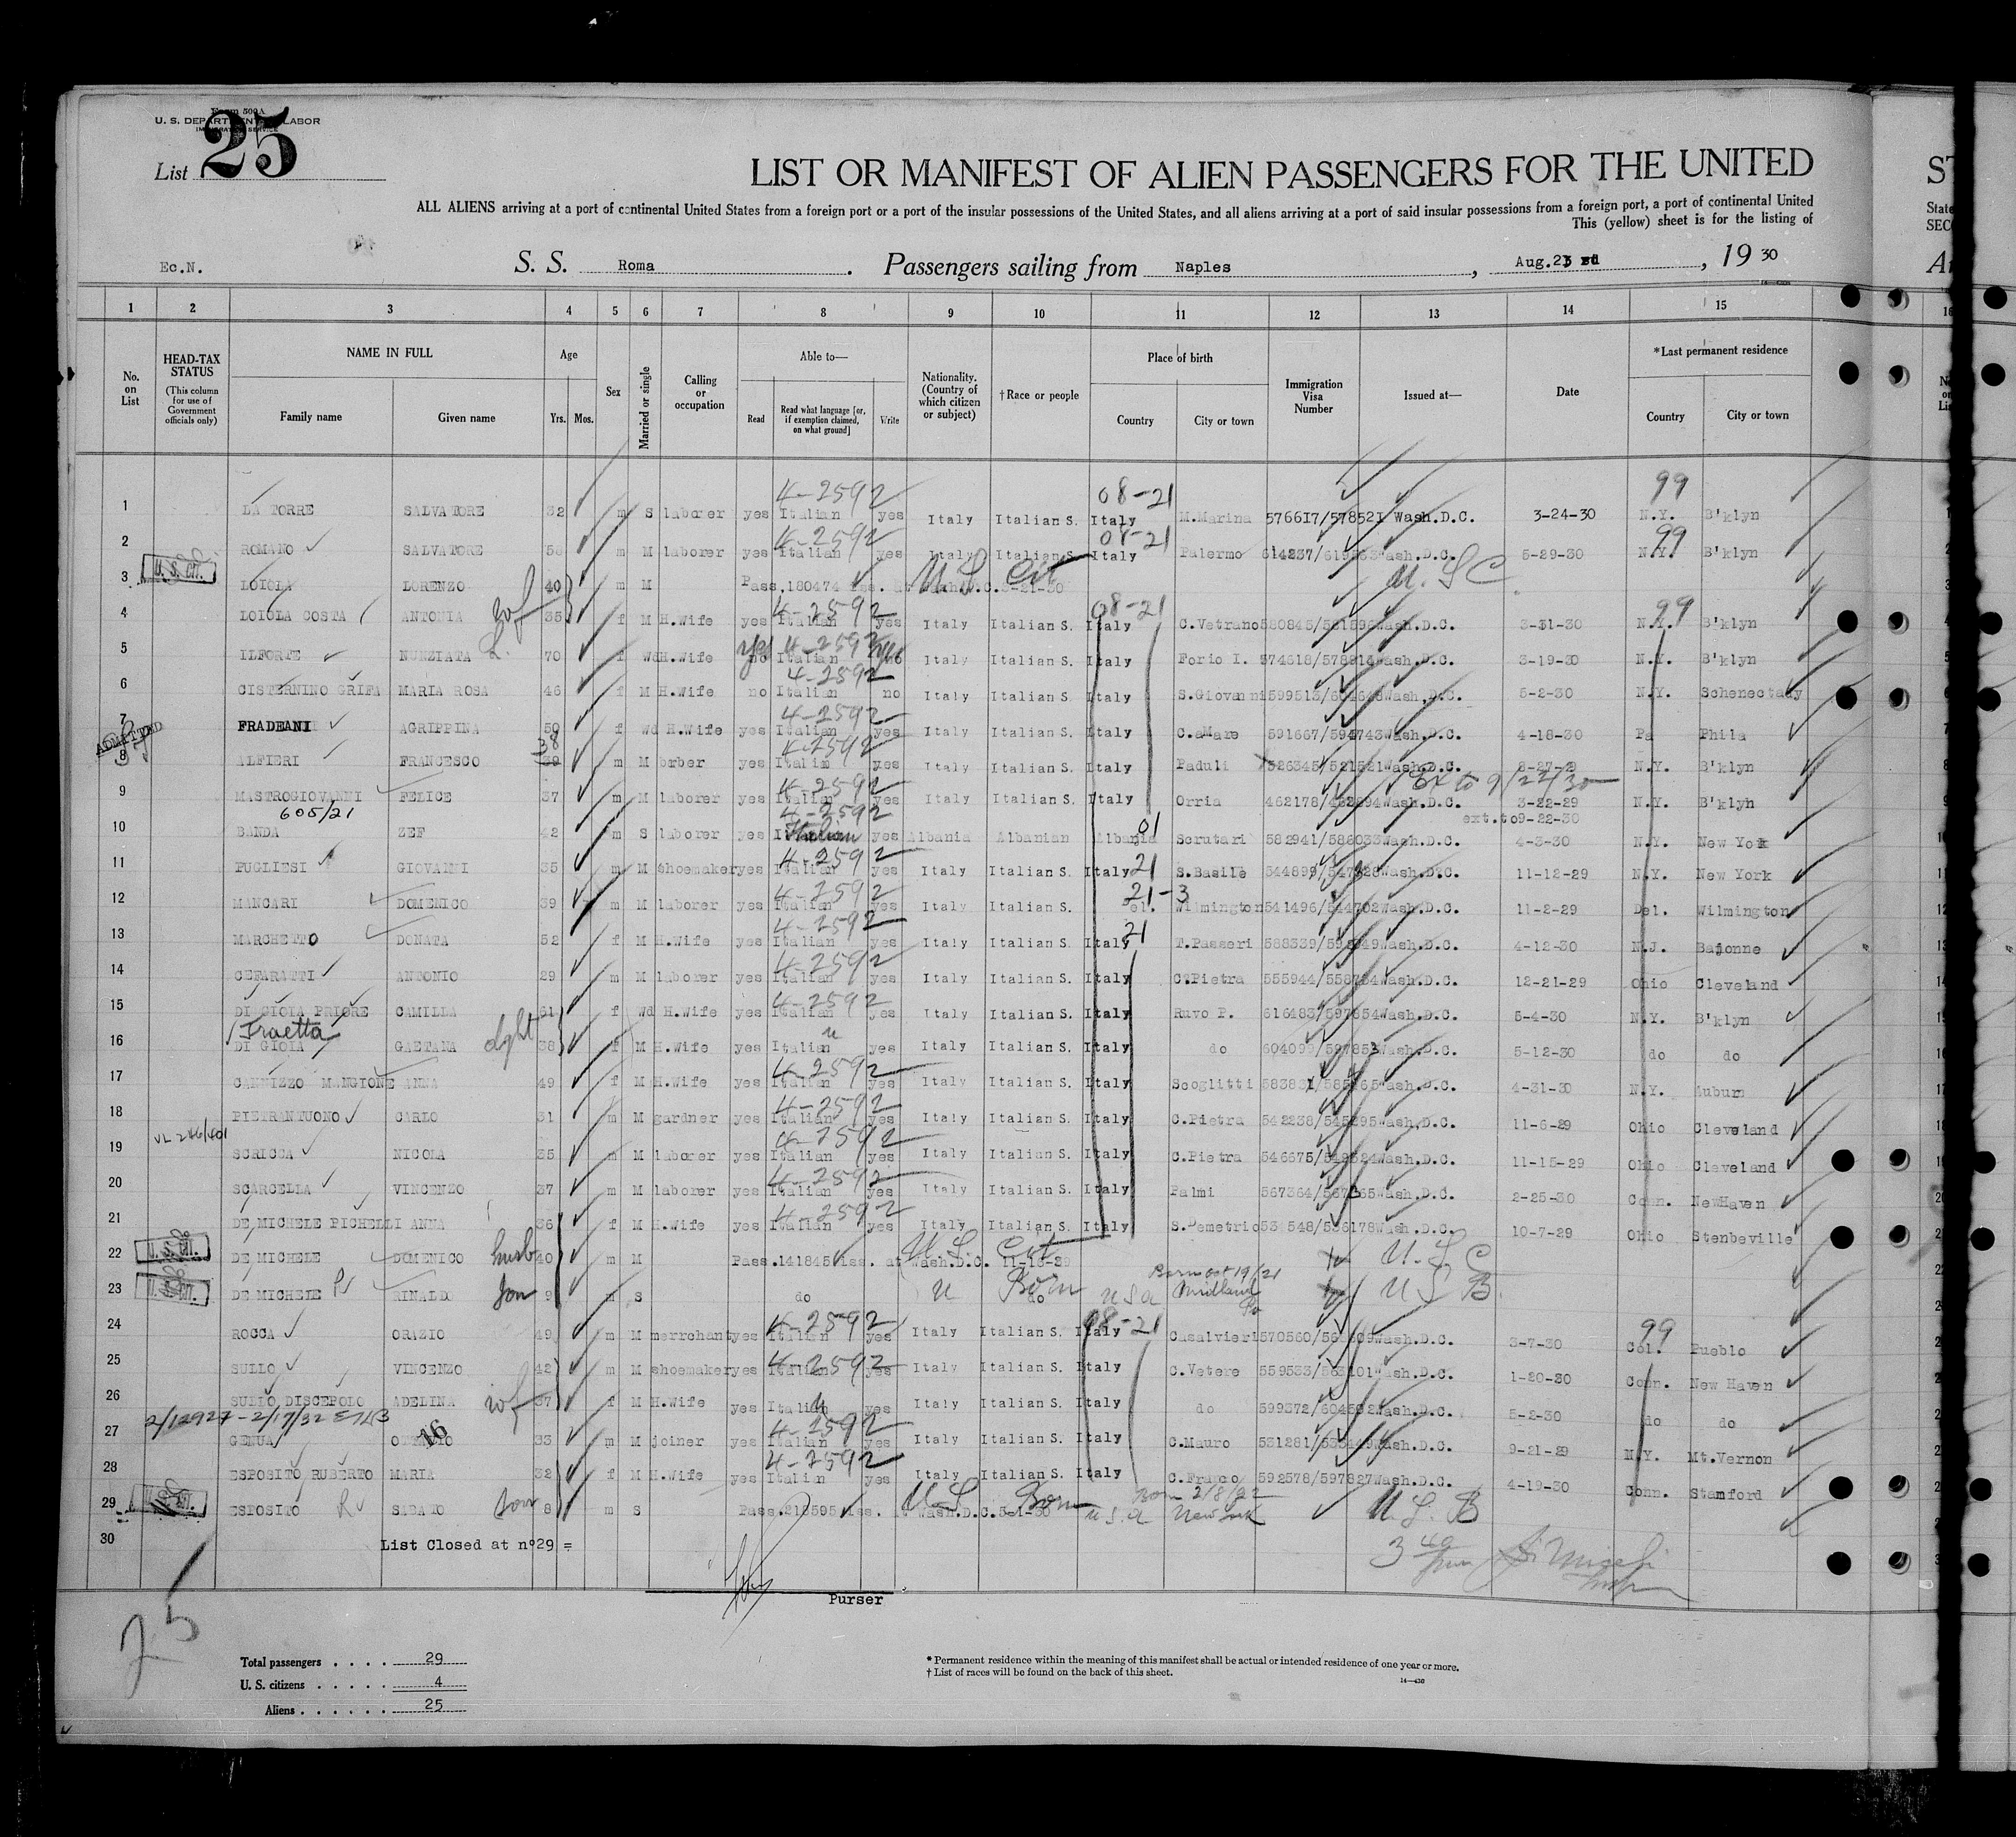 Form 500 A
U. S. DEPARTMENT OF LABOR
IMMIGRATION SERVICE
List 25
LIST OR MANIFEST OF ALIEN PASSENGERS FOR THE UNITED
ALL ALIENS arriving at a port of continental United States from a foreign port or a port of the insular possessions of the United States, and all aliens arriving at a port of said insular possessions from a foreign port, a port of continental United
This (yellow) sheet is for the listing of
Ec.N. S. S. Roma. Passengers sailing from Naples, Aug. 23 rd, 19 30
1 2 3 4 5 6 7 8 9 10 11 12 13 14 15
No. on List
HEAD-TAX STATUS (This column for use of Government officials only)
NAME IN FULL Family name Given name
Age Yrs. Mos.
Sex
Married or single
Calling or occupation
Able to— Read Read what language [or, if exemption claimed, on what ground] Write
Nationality. (Country of which citizen or subject)
†Race or people
Place of birth Country City or town
Immigration Visa Number
Issued at—
Date
*Last permanent residence Country City or town
1 LA TORRE SALVATORE 32 m S laborer yes Italian 4-2592 yes Italy Italian S. Italy 08-21 M.Marina 576617/578521 Wash.D.C. 3-24-30 N.Y. 99 B'klyn
2 ROMANO SALVATORE m M laborer yes Italian 4-2592 yes Italy Italian S. Italy 08-21 Palermo Wash.D.C. 5-29-30 N.Y. 99 B'klyn
3 U. S. CIT. LOIOLA LORENZO 40 m M Pass.180474 iss. at Wash.D.C. 3-21-30 U.S. Cit U.S C
4 LOIOLA COSTA ANTONIA wf 35 f M H.Wife yes Italian 4-2592 yes Italy Italian S. Italy 08-21 C.Vetrano Wash.D.C. 3-31-30 N.Y. 99 B'klyn
5 ILFORTE NUNZIATA 70 f Wd H.Wife no yes Italian 4-2592 no Italy Italian S. Italy Forio I. Wash.D.C. 3-19-30 N.Y. B'klyn
6 CISTERNINO GRIFA MARIA ROSA 46 f M H.Wife no Italian 4-2592 no Italy Italian S. Italy S.Giovanni Wash.D.C. 5-2-30 N.Y. Schenectady
7 FRADEANI AGRIPPINA 50 f Wd H.Wife yes Italian 4-2592 yes Italy Italian S. Italy C.aMare Wash.D.C. 4-18-30 Pa Phila
ADMITTED
8 ALFIERI FRANCESCO 39 38 m M brber yes Italian 4-2592 yes Italy Italian S. Italy Paduli Wash.D.C. N.Y. B'klyn
Ex to 9/22/30
9 MASTROGIOVANNI FELICE 37 m M laborer yes Italian 4-2592 yes Italy Italian S. Italy Orria Wash.D.C. 3-22-29 N.Y. B'klyn
605/21 ext.to 9-22-30
10 BANDA ZEF 42 m S laborer yes Italian 4-2592 yes Albania Albanian Albania Scrutari 582941/586033 Wash.D.C. 4-3-30 N.Y. New York
11 PUGLIESI GIOVANNI 35 m M shoemaker yes Italian 4-2592 yes Italy Italian S. Italy 21 S.Basile Wash.D.C. 11-12-29 N.Y. New York
12 MANCARI DOMENICO 39 m M laborer yes Italian 4-2592 yes Italy Italian S. 21-3 Wilmington 541496/544702 Wash.D.C. 11-2-29 Del. Wilmington
13 MARCHETTO DONATA 52 f M H.Wife yes Italian 4-2592 yes Italy Italian S. Italy 21 T.Passeri Wash.D.C. 4-12-30 N.J. Bajonne
14 CEFARATTI ANTONIO 29 m M laborer yes Italian 4-2592 yes Italy Italian S. Italy C.Pietra Wash.D.C. 12-21-29 Ohio Cleveland
15 DI GIOIA PRIORE CAMILLA 61 f Wd H.Wife yes Italian 4-2592 yes Italy Italian S. Italy Ruvo P. Wash.D.C. 5-4-30 N.Y. B'klyn
Traetta
16 DI GIOIA GAETANA dght 38 f M H.Wife yes Italian yes Italy Italian S. Italy do 604099/597853 Wash.D.C. 5-12-30 do do
17 CANNIZZO MANGIONE ANNA 49 f M H.Wife yes Italian 4-2592 yes Italy Italian S. Italy Scoglitti Wash.D.C. 4-31-30 N.Y. Auburn
18 PIETRANTUONO CARLO 31 m M gardner yes Italian 4-2592 yes Italy Italian S. Italy C.Pietra Wash.D.C. 11-6-29 Ohio Cleveland
19 SCRICCA NICOLA 35 m M laborer yes Italian 4-2592 yes Italy Italian S. Italy C.Pietra Wash.D.C. 11-15-29 Ohio Cleveland
20 SCARCELLA VINCENZO 37 m M laborer yes Italian 4-2592 yes Italy Italian S. Italy Palmi Wash.D.C. 2-25-30 Conn. NewHaven
21 DE MICHELE PICHELLI ANNA 36 f M H.Wife yes Italian 4-2592 yes Italy Italian S. Italy S.Demetrio 534548/536178 Wash.D.C. 10-7-29 Ohio Stenbeville
22 U. S. CIT. DE MICHELE DOMENICO husb 40 m M Pass.141845 iss. at Wash.D.C. U.S. Cit U.S.C
23 U. S. CIT. DE MICHELE RINALDO son 9 m S do do U Born USA Born oct 19/21 Midland Pa U S B.
24 ROCCA ORAZIO 49 m M merrchant yes Italian 4-2592 yes Italy Italian S. Italy 08-21 Casalvieri Wash.D.C. 3-7-30 Col. 99 Pueblo
25 SULLO VINCENZO 42 m M shoemaker yes Italian 4-2592 yes Italy Italian S. Italy C.Vetere Wash.D.C. 1-20-30 Conn. New Haven
26 SULLO DISCEPOLO ADELINA wf 37 f M H.Wife yes Italian yes Italy Italian S. Italy do Wash.D.C. 5-2-30 do do
2/12927-2/17/32
27 GENUA 16 33 m M joiner yes Italian 4-2592 yes Italy Italian S. Italy C.Mauro Wash.D.C. 9-21-29 N.Y. Mt.Vernon
28 ESPOSITO RUBERTO MARIA 32 f M H.Wife yes Italian 4-2592 yes Italy Italian S. Italy C.Franco 592578/597827 Wash.D.C. 4-19-30 Conn. Stamford
29 ESPOSITO SABATO son 8 m S Pass.218595 iss. at Wash.D.C. 5-1-30 U.S. Born USA Born 2/8/22 New York U.S.B
30 List Closed at n°29 =
3 40 pm
Purser
25
Total passengers . . . . 29
U. S. citizens . . . . . 4
Aliens . . . . . . 25
* Permanent residence within the meaning of this manifest shall be actual or intended residence of one year or more.
† List of races will be found on the back of this sheet.
14—430